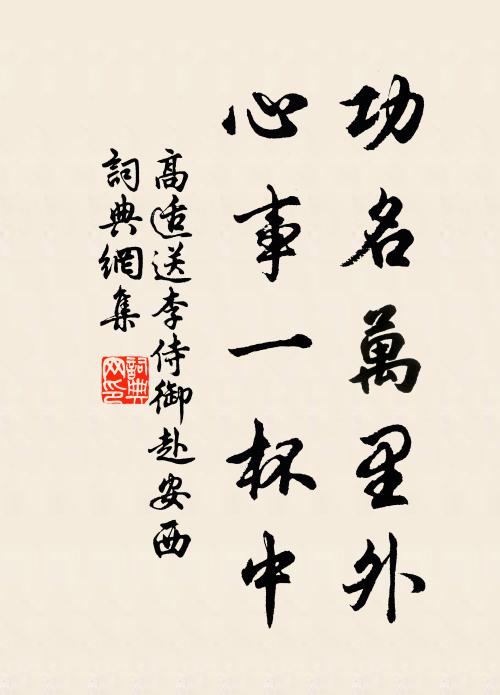 功名萬里外
心事一杯中
高适送李侍御赴安西
詞典網集
詞典網印